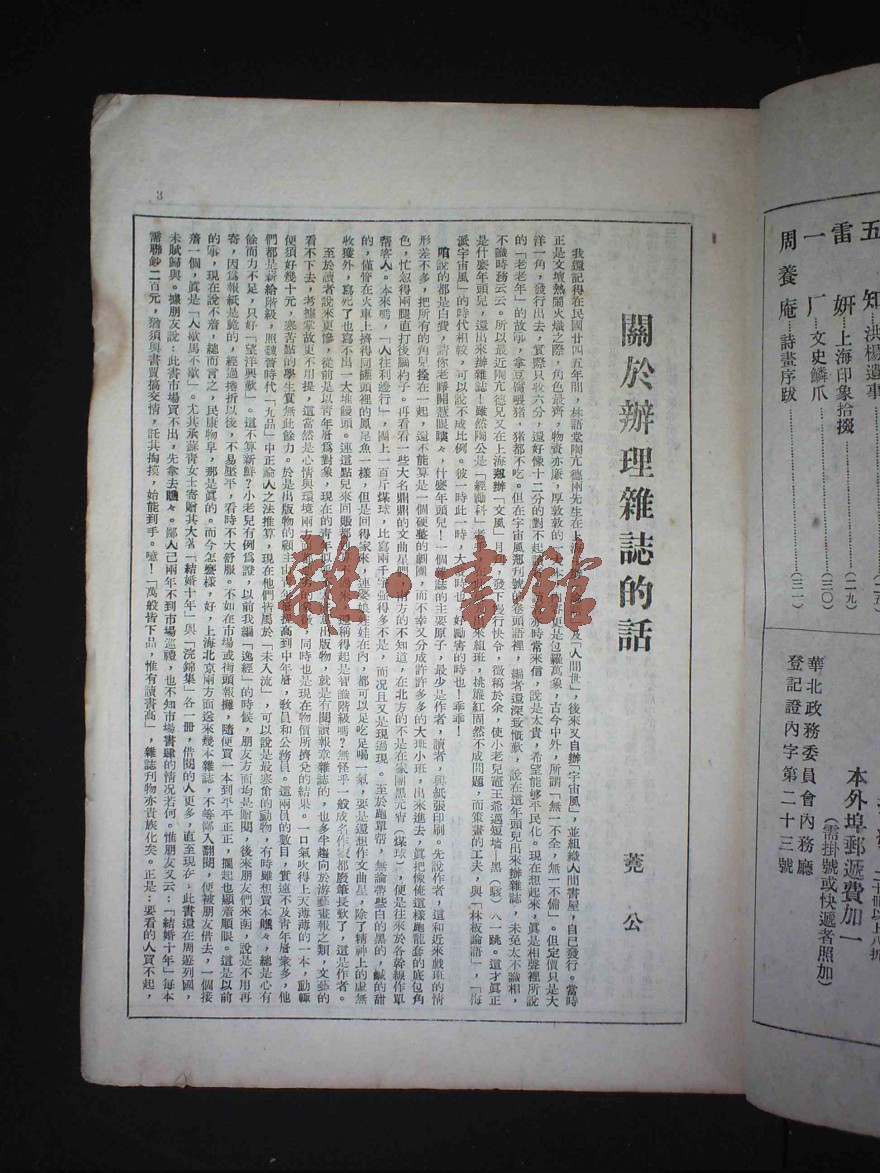 五 知……洪楊遺事……(二五)
雷 妍……上海印象拾掇……(二九)
一 厂……文史鱗爪……(三〇)
周 養 庵……詩畫序跋……(三一)
本外埠郵遞費加一
(需掛號或快遞者照加)
華北政務委員會內務廳
登記證內字第二十三號
3
關於辦理雜誌的話
蕘 公
我還記得在民國廿四五年間，林語堂陶亢德兩先生在上海
及「人間世」，後來又自辦「宇宙風」，並組織人間書屋，自己發行。當時
正是文壇熱鬧火熾之際，角色最齊，物資亦廉，厚敦敦的
更是包羅萬象，古今中外，所謂「無一不全，無一不備」。但定價只是大
洋一角，發行出去，實際只收六分，還好像十二分的對不起
亦時常來信，說是太貴，希望能够平民化。現在想起來，眞是相聲裡所說
的「老老年」的故事，拿豆腐喂猪，猪都不吃。但在宇宙風剏刊號的卷頭語裡，編者還深致慨歎，說在這年頭兒出來辦雜誌，未免太不識相，
不識時務云云。所以最近陶亢德兒又在上海剏辦「文風」月刊，發下慢行快令，徵稿於余，使小老兒竈王爺過短墻—黑（駭）八一跳。這才眞正
是什麽年頭兒，還出來辦雜誌！雖然陶公是「一經勵科」
出來組班，挑簾紅固然不成問題，而策畫的工夫，與「林板論語」，「海
派宇宙風」的時代相較，可以說不成比例。彼一時此一時，
時也，好勵害的時也！乖乖！
嗆說的都是白費，請你老睜開慧眼瞜々，什麽年頭兒！一個雜誌的主要原子，最少是作者，讀者，與紙張印刷。先說作者，這和近來戲班的情
形差不多，把所有的角兒捲在一起，還不能算是一個硬整的劇團，而不幸又分成許許多多的大班小班，出來進去，眞把像俺這樣跑龍套的底包角
色，忙忽得兩腿直打後腦杓子。再看看一些大名鼎鼎的文曲星們，南方的不知道，在北方的不是在家團黑元宵（煤球），便是往來於各幹線作單
幫客人。本來嗎，「人往利邊行」，團上一百斤煤球，比寫兩千字強得多不是，而況且又是現過現。至於跑單幫，無論帶些白的黑的，鹹的甜
的，僅管在火車上擠得同罐頭裡的鳳尾魚一樣，但是回得家來，連婆娘帶娃娃在內，都可以足吃足喝一氣，要是還想作文曲星，除了精神上的虛無
收獲外，寫死了也寫不出一大堆饅頭。連這點兒來回賬都
還稱得起是智識階級嗎？無怪乎一般成名作家都廢筆長歎了，這是作者。
至於讀者說來更慘，從前是以青年層爲對象，現在的青年
出版物，就是有閱讀報章雜誌的，也多半趨向於游藝畫報之類，文藝的
看不下去，考據掌故更不用提，這當然是心情與環境兩方面
同時也是現在物價所擠兌的結果。一口氣吹得上天薄薄的一本，動輒
便須好幾十元，寒苦點的學生實無此餘力。於是出版物的顧主由青年層提高到中年層，教員和公務員。這兩員的數目，實遠不及青年層衆多，他
們都是薪給階級，照魏晉時代「九品」中正論人之法推算，現在他們皆屬於「未入流」，可以說是最寒傖的動物，有時雖想買本瞧々，總是心有
餘而力不足，只好「望洋興歎」。這不算新鮮？小老兒有例爲證，以前我編「逸經」的時候，朋友方面均是附閱，後來朋友們來函，說是不用再
寄，因爲報紙是脆的，經過捲折以後，不易壓平，看時不大舒服。不如在市場或街頭報攤，隨便買一本到平平正正，擺起也顯着順眼。這是以前
的事，現在說不着，總而言之，民康物阜，那是眞的。而今怎麽樣，好，上海北京兩方面送來幾本雜誌，不等鄙人翻閱，便被朋友借去，一個接
着一個，眞是「人歇馬不歇」。尤其承蘇靑女士寄贈其大著「結婚十年」與「浣錦集」各一冊，借閱的人更多，直至現在，此書還在周遊列國，
未賦歸與。據朋友說：此書市場買不出，先拿去瞧々。鄙人已兩年不到市場巡禮，也不知市場書肆的情況若何。惟朋友又云：「結婚十年」每本
需聯鈔二百元，猶須與書賈搞交情，託其掏摸，始能到手。噫！「萬般皆下品，惟有讀書高」，雜誌刊物亦貴族化矣。正是：要看的人買不起，
雜·書館